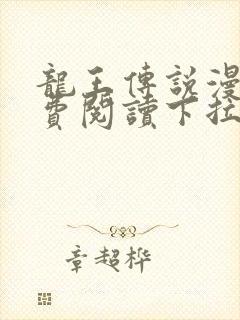 龍王傳說漫
費閱讀下拉
章超桦